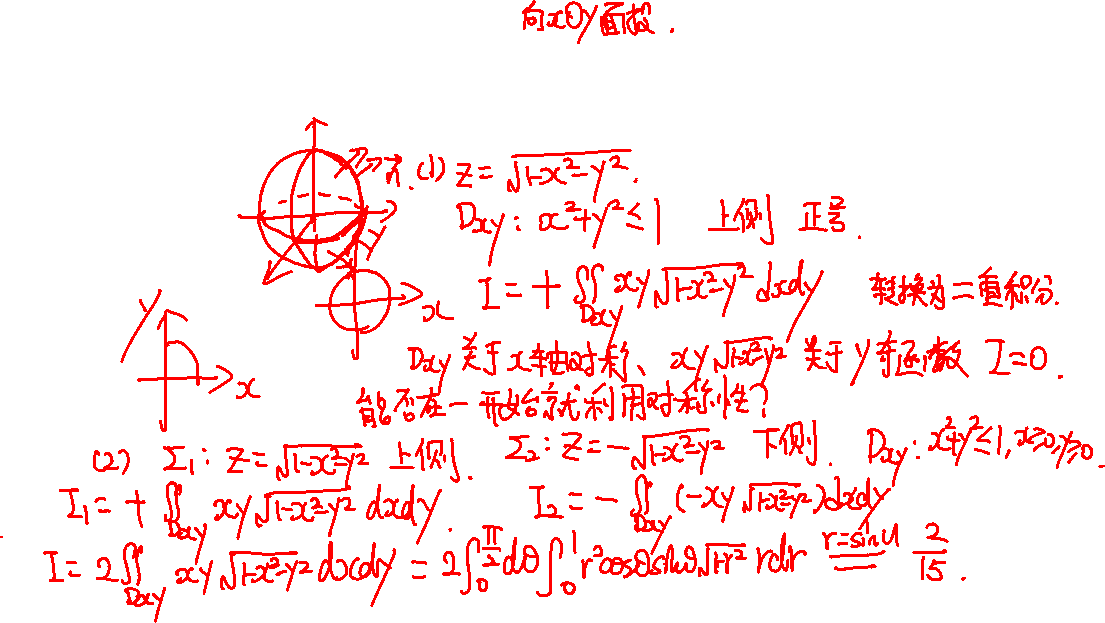 向xOy面投.
n⃗. (1) z = √(1-x²-y²).
Dxy: x²+y² ≤ 1 上侧 正号.
I = + ∬_Dxy xy√(1-x²-y²) dxdy 转换为二重积分.
x
y
x
Dxy关于x轴对称、xy√(1-x²-y²)关于y奇函数 I=0.
能否在一开始就利用对称性?
(2) Σ₁: z = √(1-x²-y²) 上侧. Σ₂: z = -√(1-x²-y²) 下侧. Dxy: x²+y² ≤ 1, x≥0, y≥0.
I₁ = + ∬_Dxy xy√(1-x²-y²) dxdy. I₂ = - ∬_Dxy (-xy√(1-x²-y²)) dxdy
I = 2∬_Dxy xy√(1-x²-y²) dxdy = 2∫₀^(π/2) dθ ∫₀¹ r²cosθsinθ√(1-r²) rdr r=sinu = 2/15.